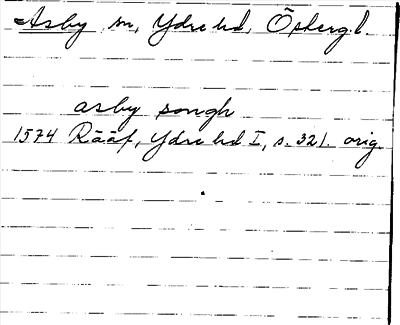 Asby sn, Ydre hd, Östergl.
asby songh
1574 Rääf, Ydre hd I, s. 321. orig.